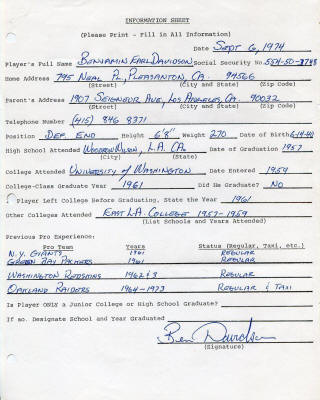 INFORMATION SHEET
(Please Print - Fill in All Information)
Date SEPT 6, 1974
Player's Full Name BENJAMIN EARL DAVIDSON Social Security No.
Home Address 795 NEAL PL, PLEASANTON, CA. 94566
(Street) (City and State) (Zip Code)
Parent's Address 1907 SEIGNEUR AVE, LOS ANGELES, CA. 90032
(Street) (City and State) (Zip Code)
Telephone Number (415) 846 8371
Position DEF. END Height 6'8" Weight 270 Date of Birth 6-14-40
High School Attended WOODROW WILSON, L.A. CA. Date of Graduation 1957
(City) (State)
College Attended UNIVERSITY OF WASHINGTON Date Entered 1959
College-Class Graduate Year 1961 Did He Graduate? NO
If Player Left College Before Graduating, State the Year 1961
Other Colleges Attended EAST L.A. COLLEGE 1957-1959
(List Schools and Years Attended)
Previous Pro Experience:
Pro Team Years Status (Regular, Taxi, etc.)
N.Y. GIANTS 1961 REGULAR
GREEN BAY PACKERS 1961 REGULAR
WASHINGTON REDSKINS 1962 & 3 REGULAR
OAKLAND RAIDERS 1964-1973 REGULAR & TAXI
Is Player ONLY a Junior College or High School Graduate?
If so, Designate School and Year Graduated
Ben Davidson
(Signature)